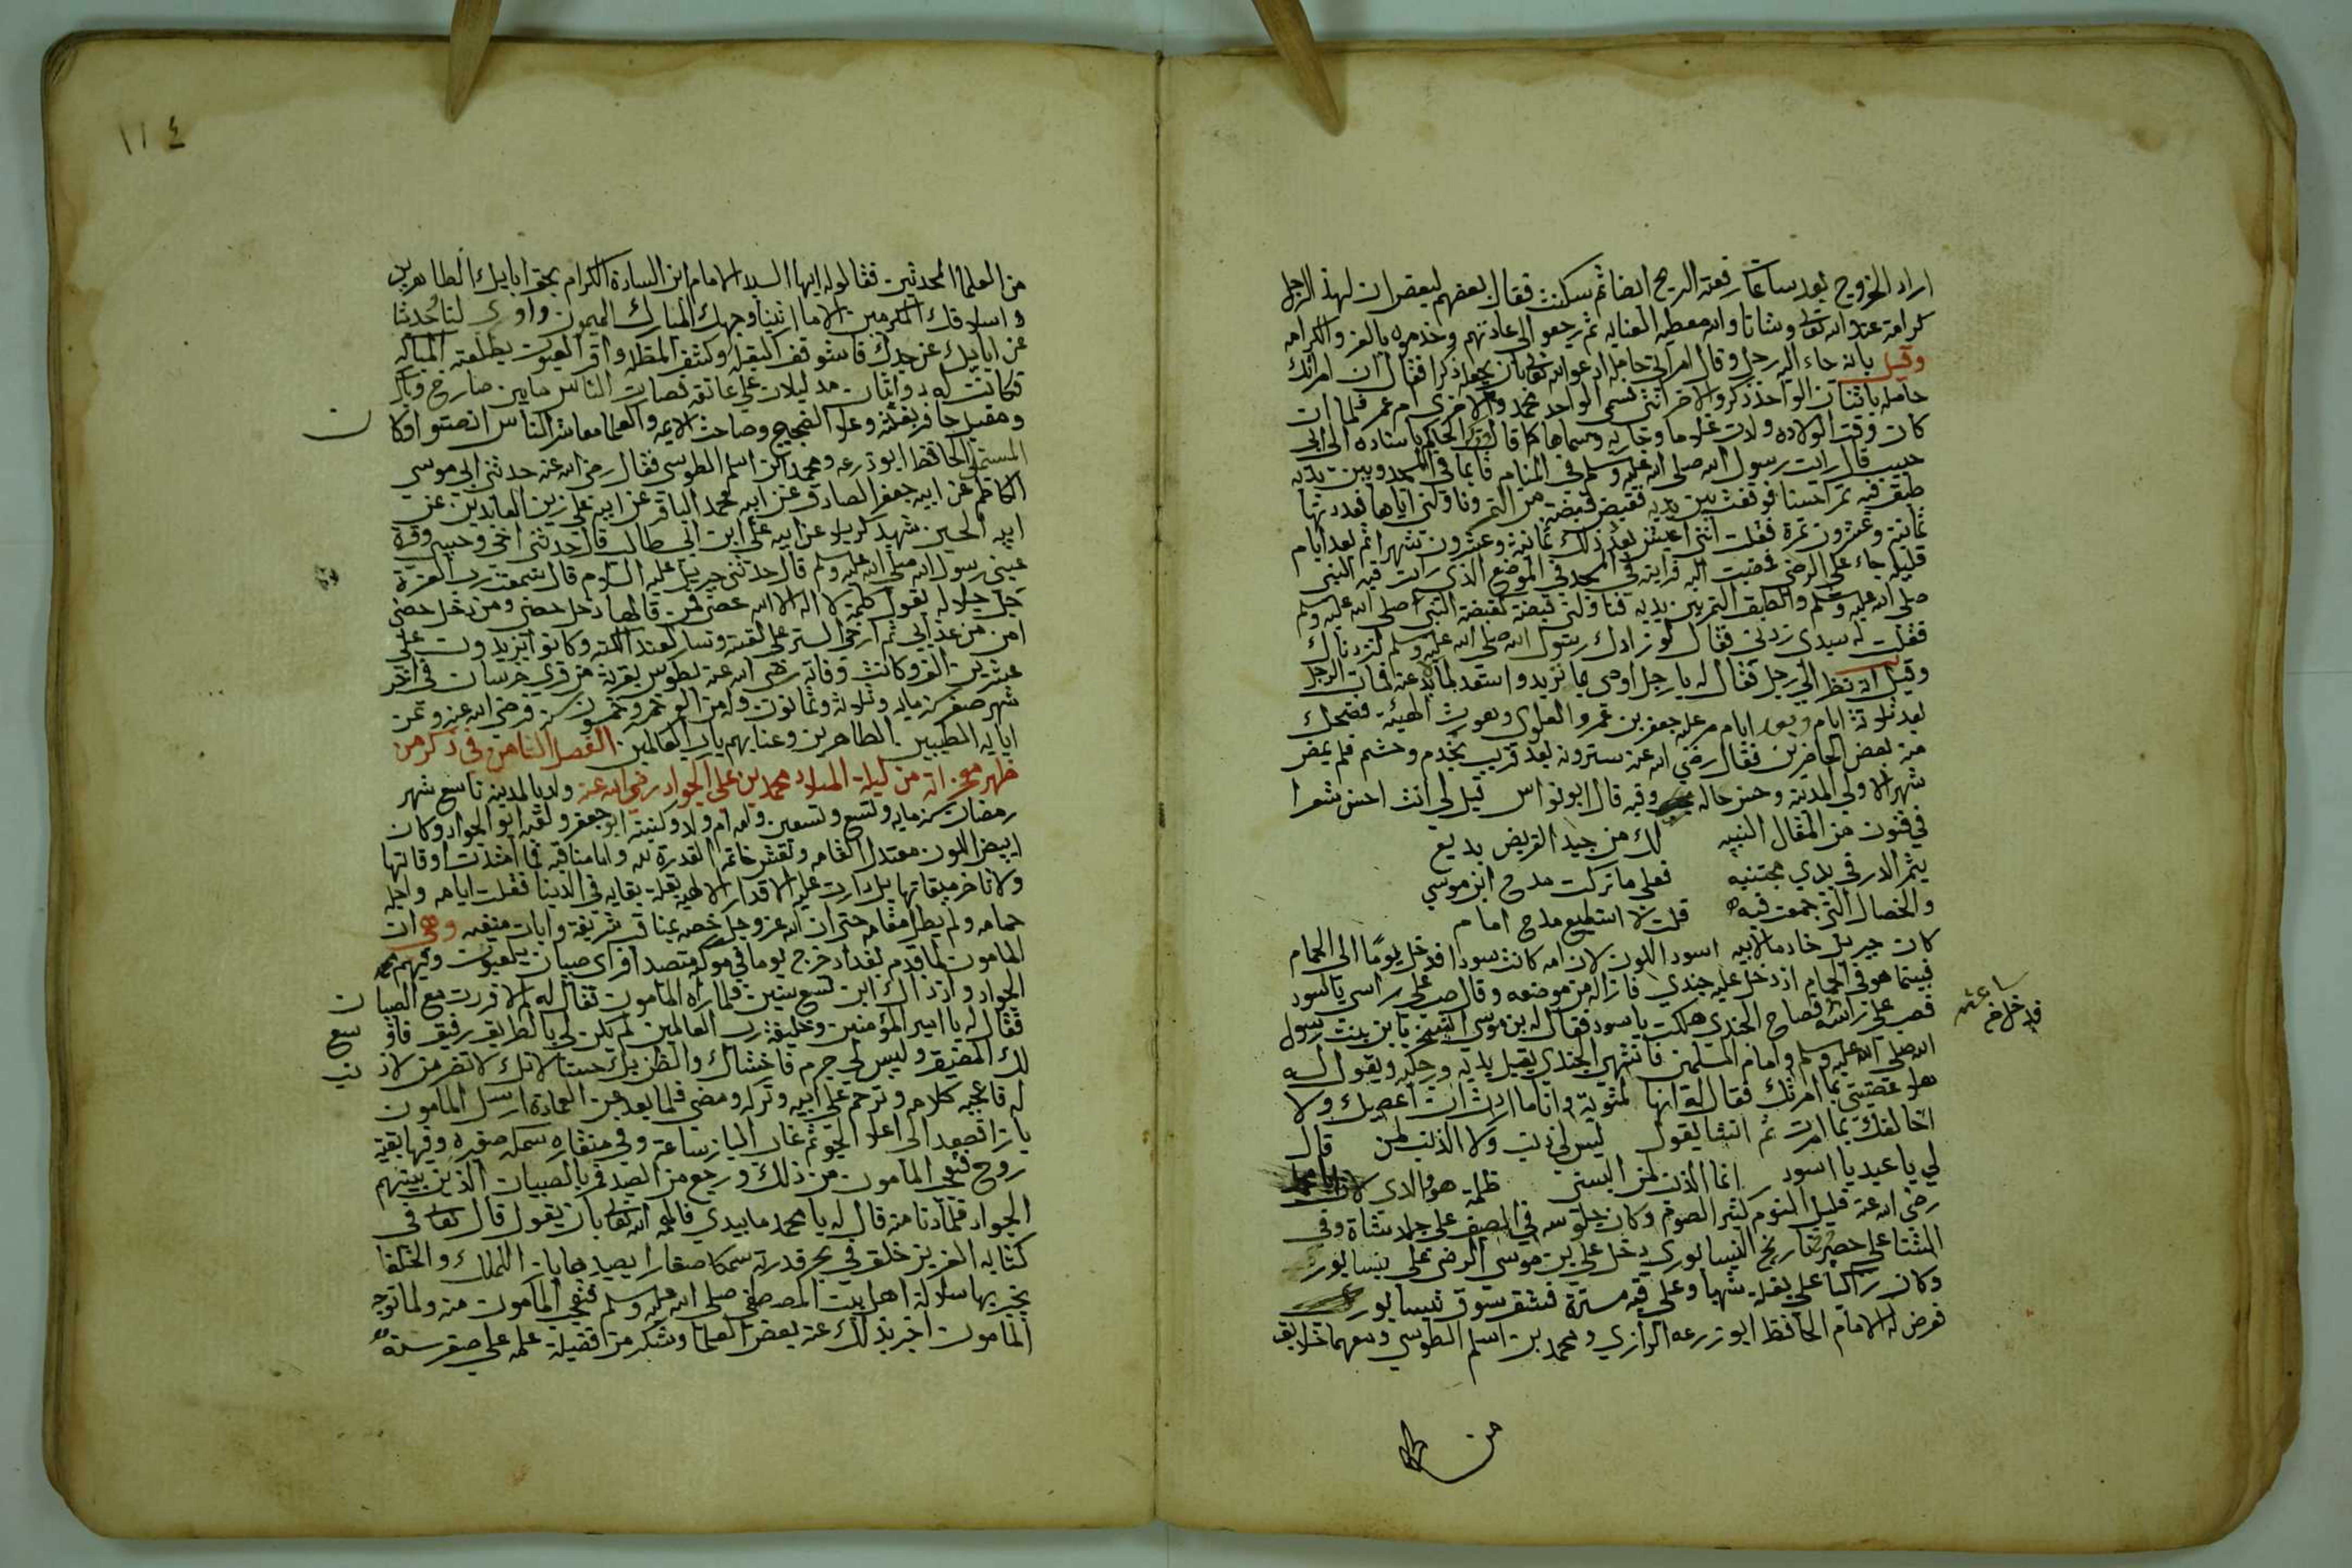 اراد الخروج بعد ساعة رفعته الريح ايضا ثم سكنت فقال بعضهم لبعض ان لهذ الرجل
كرامة عند الله تعالى وشانا والله معطيه العنايه ثم رجعوا الى عادتهم وخدموه بالعز والكرامه
وقيل بانه جاء اليه رجل وقال امراتي حامل ادعوا الله تعالى بان يجعله ذكرا فقال ان امراتك
حامله باثنان الواحد ذكر والاخر انثى فسمى الواحد محمد والاخرى ام عمر فلما ان
كان وقت الولاده ولدت غلاما وجاريه وسماها كما قال وذكر الحاكم باسناده الى ابي
حبيب قال رايت رسول الله صلى الله عليه وسلم في المنام قائما في المسجد وبين يديه
طبق فيه تمرا حسنا فوقفت بين يديه فقبض قبضة من التمر وناولني اياها فعددتها
ثمانية وعشرون تمرة فقلت انني اعيش بعد ذلك ثمانية وعشرون شهرا ثم بعد ايام
قليله جاء علي الرضى فمضيت اليه فرايته في المسجد في الموضع الذي رايت فيه النبي
صلى الله عليه وسلم والطبق التمر بين يديه فناولني قبضة كقبضة النبي صلى الله عليه وسلم
فقلت له سيدي زدني فقال لو زادك رسول الله صلى الله عليه وسلم لزدناك
وقيل انه نظر الى رجل فقال له يا رجل اوصي بما تريد واستعد لما لابد عنه فمات الرجل
بعد ثلاثة ايام وبعد ايام مر عليه جعفر بن عمرو العلوي وهو رث الهيئة فضحك
منه بعض الحاضرين فقال رضي الله عنه سترونه بعد قريب بخدم وحشم فلم يمض
شهر الا ولي المدينة وحسن حاله وفيه قال ابو نواس قيل لي انت احسن شعرا
في فنون من المقال النبيه لك من جيد القريض بديع
يثمر الدر في يدي مجتنيه فعلى ما تركت مدح ابن موسى
والخصال التي جمعت فيه قلت لا استطيع مدح امام
كان جبريل خادما لابيه اسود اللون لان امه كانت سودا فدخل يوما الى الحمام
فبينما هو في الحمام اذ دخل عليه جندي فازاله من موضعه وقال صب على راسي يا اسود
فصب على راسه فصاح الجندي هلكت يا اسود فقال له بن موسى يا بن بنت رسول
الله صلى الله عليه وسلم وامام المسلمين فانتهى الجندي يقبل يديه ورجليه ويقول له
هلا عصيتني بما امرتك فقال له انها لمثوبة وانا ما اردت ان اعصيك ولا
اخالفك بما امرت ثم انشا يقول ليس لي ذنب ولا الذنب لمن قال
لي يا عبد يا اسود انما الذنب لمن البسني ظلمة هو الذي
رضي الله عنه قليل النوم كثير الصوم وكان جلوسه في الصيف على جلد شاة وفي
الشتا على حصير تاريخ النيسابوري دخل علي بن موسى الرضى على نيسابور
وكان راكبا على بغله شهبا وعلى قبه مستره فشق سوق نيسابور
فعرض له الامام الحافظ ابو زرعه الرازي ومحمد بن اسلم الطوسي ومعهما خلايق
من العلما المحدثين فقالوا له ايها السيد الامام ابن السادة الكرام بحق ابايك الطاهرين
واسلافك المكرمين الا ما اريتنا وجهك المبارك الميمون واروي لنا حديثا
عن ابايك عن جدك فاستوقف البغله وكشف المظله واقر العيون بطلعته المباركه
فكانت له ذوابتان مدليلات على عاتقه فصارت الناس ما بين صارخ وباك
ومقبل حافر بغلته وعلا الضجيج وصاحت الايمه والعلما معاشر الناس انصتوا وكان
المستملي الحافظ ابو زرعه ومحمد ابن اسلم الطوسي فقال رضي الله عنه حدثني ابي موسى
الكاظم عن ابيه جعفر الصادق عن ابيه محمد الباقر عن ابيه علي زين العابدين عن
ابيه الحسين شهيد كربلا عن ابيه علي ابن ابي طالب قال حدثني اخي وحبيبي وقرة
عيني رسول الله صلى الله عليه وسلم قال حدثني جبريل عليه السلام قال سمعت رب العزة
جل جلاله يقول كلمة لا اله الا الله حصني فمن قالها دخل حصني ومن دخل حصني
امن من عذابي ثم ارخى الستر على القبة وسار فعند الكتبه وكانوا يزيدون على
عشرين الف وكانت وفاته رضي الله عنه بطوس بقرية من قرى خرسان في اخر
شهر صفر سنه مايه وثلاثة وثمانون وله من العمر خمسون سنه فرضي الله عنه وعن
ابايه الطيبين الطاهرين وعنا بهم يا رب العالمين الفصل الثامن في ذكر من
ظهر معجزاته من ليلة الميلاد محمد بن علي الجواد رضي الله عنه ولد بالمدينه تاسع شهر
رمضان سنه مايه وتسع وتسعين وامه ام ولد وكنيته ابو جعفر ولقبه ابو الجواد وكان
ابيض اللون معتدل القامه ونقش خاتمه القدرة لله واما مناقبه فما امتدت اوقاتها
ولا تاخر ميقاتها بل دارت عليه الاقدار الالهيه بقلة بقايه في الدينا فقلت ايامه واجل
حمامه ولم يطل مقامه حتى ان الله عز وجل خصه بمناقب شريفة وايات منيفه وهي ان
المامون لما قدم بغداد خرج يوما في موكبه متصدا فراى صبيان يلعبون وفيهم محمد
الجواد واذ ذاك ابن تسع سنين فلما راه المامون فقال له لم لا فررت مع الصبيان
فقال له يا امير المؤمنين وخليفة رب العالمين لم يكن لي بالطريق رفيق فاوسع
لك المضيق وليس لي جرم فاخشاك والظن بك حسنا لانك لا تضر من لا ذنب
له فاعجبه كلامه وترحم على ابيه وتركه ومضى فلما بعد عن العمارة ارسل المامون
بازا فصعد الى اعلا الجو ثم غاب الباز ساعة وفي منقاره سمكه صغيره وفيها بقية
روح فتعجب المامون من ذلك ورجع من الصيد فمر بالصبيان الذين بينهم
الجواد فلما دنا منه قال له يا محمد ما بيدي فالهمه الله تعالى بان يقول قال تعالى في
كتابه العزيز خلق في بحر قدرته سمكا صغارا يصيدها بازات الملوك والخلفا
يختبر بها سلالة اهل بيت المصطفى صلى الله عليه وسلم فتعجب المامون منه ولما توجه
المامون اخبر بذلك عنه بعض العلما وشكر من افضيلة علمه على صغر سنه
١١٤